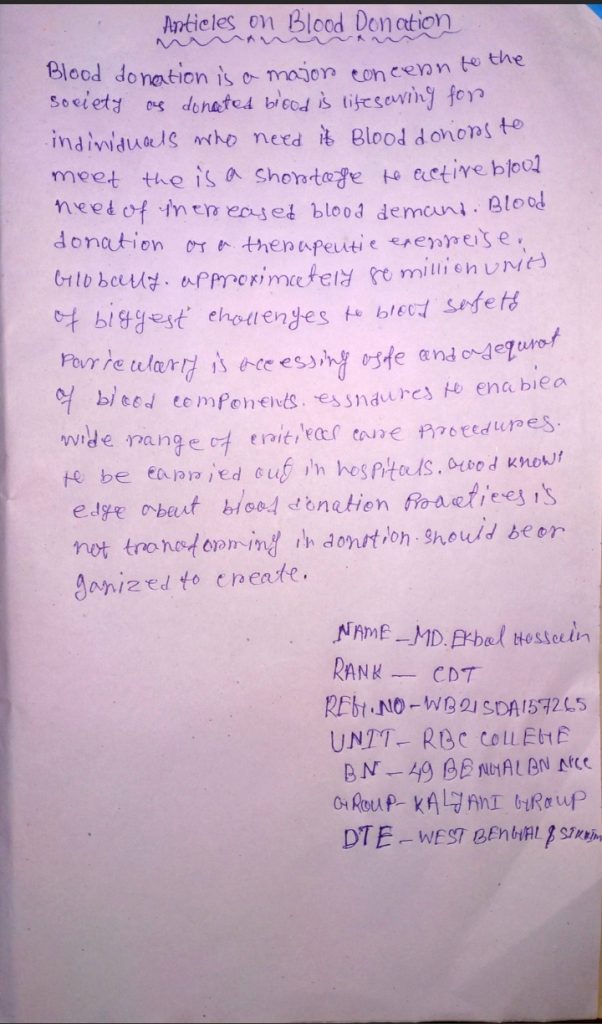 Articles on Blood Donation
Blood donation is a major concern to the
society as donated blood is lifesaving for
individuals who need it Blood donors to
meet the is a shortage to active blood
need of increased blood demand. Blood
donation as a therapeutic exercise.
Globally. approximately 80 million units
of biggest challenges to blood safety
Particularly is accessing safe and adequat
of blood components. essndures to enable a
wide range of critical care Procedures.
to be carried out in hospitals. Good knowl
edge about blood donation Practices is
not transforming in donation. should be or
ganized to create.
NAME - MD. Ekbal Hossain
RANK - CDT
REG. NO - WB21SDA157265
UNIT - RBC COLLEGE
BN - 49 BENGAL BN NCC
GROUP - KALYANI GROUP
DTE - WEST BENGAL & SIKKIM